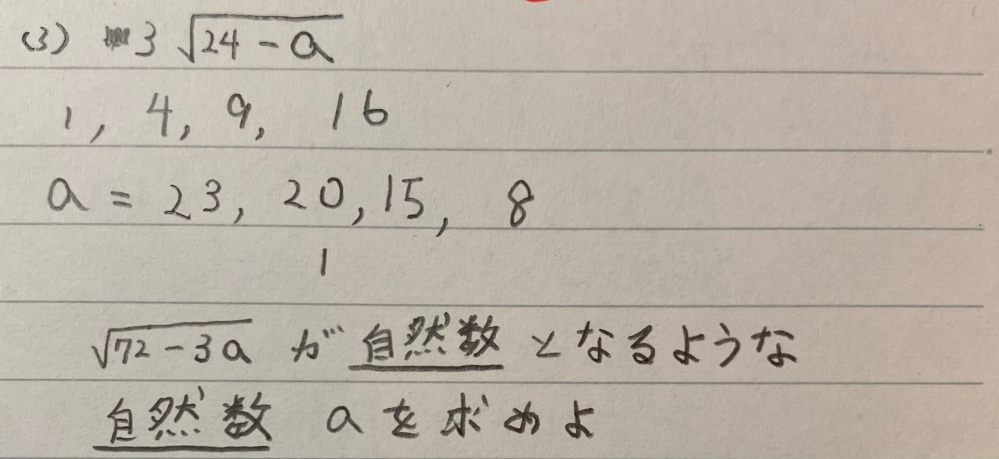 (3) 3√24-a
1, 4, 9, 16
a = 23, 20, 15, 8
1
√72-3a が自然数となるような
自然数 aを求めよ